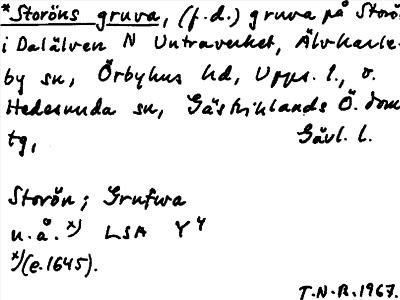 *Storöns gruva, (f.d.) gruva på Storö
i Dalälven N Untraverket, Älvkarle-
by sn, Örbyhus hd, Upps. l., o.
Hedesunda sn, Gästriklands Ö. dom
tg, Gävl. l.
Storön; Grufwa
u.å. x) LSA Y4
x)(e.1645).
T.N.B.1967.